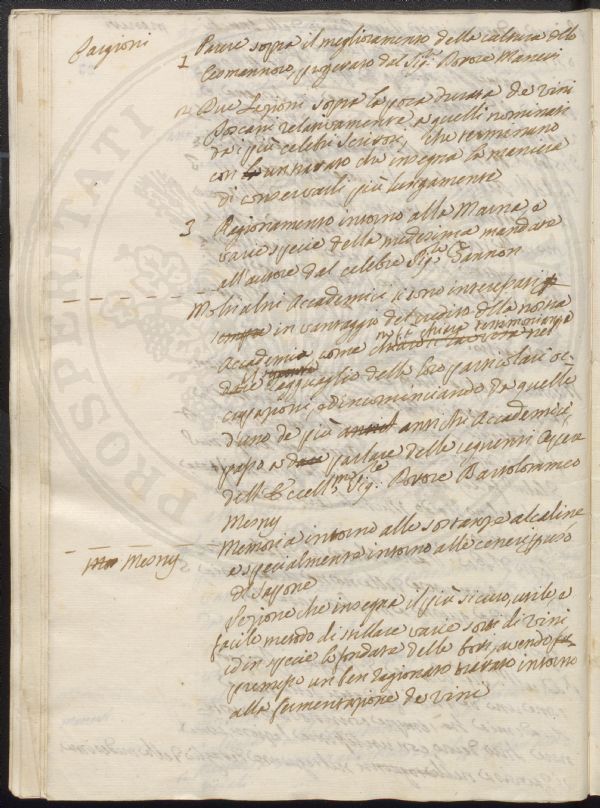 Targioni
1 Parere sopra il miglioramento della cultura dell'
Cosmannoro, proposto dal Sig. Dottore Maneri
2 Due Lezioni sopra la poca durata de vini
Toscani relativamente a quelli nominati
da' più celebri Scrittori, che terminano
con un trattato che insegna la maniera
di conservarli più lungamente
3 Ragionamento intorno alla Marna, e
varie specie della medesima mandate
all'autore dal celebre Sig.
Molti altri Accademici si sono interessati
in vantaggio del credito della nostra
Accademia come
ragguaglio delle loro particolari oc-
cupazioni, ed incominciando da quelle
d'uno de più antichi Accademici,
passo a parlare delle seguenti Opere
dell'Eccell.mo Sig. Dottore Bartolommeo
Mesny
Mesny
Memoria intorno alle sostanze alcaline
e specialmente intorno alle ceneri per uso
di sapone
Lezione che insegna il più sicuro, utile, e
facile metodo di stillare varie sorti di vini
ed in specie le fondate delle botti, avendo
premesso un ben ragionato trattato intorno
alla fermentazione de vini
PROSPERITATI